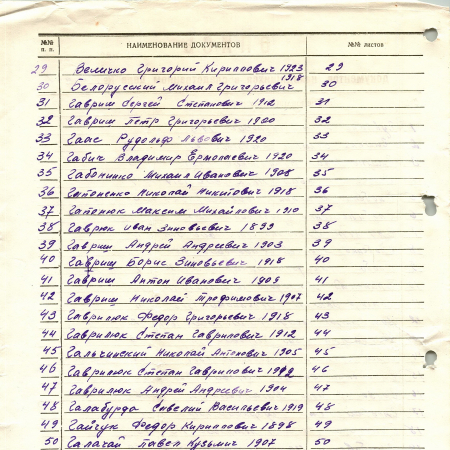 №№ п. п. НАИМЕНОВАНИЕ ДОКУМЕНТОВ №№ листов
29 Величко Григорий Кириллович 1923 29
30 Белорусский Михаил Григорьевич 1918 30
31 Гавриш Сергей Степанович 1912 31
32 Гавриш Петр Григорьевич 1900 32
33 Гаас Рудольф Львович 1920 33
34 Габич Владимир Ермолаевич 1920 34
35 Михаил Иванович 1908 35
36 Гапоненко Николай Никитович 1918 36
37 Гапонюк Максим Михайлович 1910 37
38 Гаврюк Иван Зиновьевич 1899 38
39 Гавриш Андрей Андреевич 1903 39
40 Гавриш Борис Зиновьевич 1918 40
41 Гавриш Антон Иванович 1905 41
42 Гавриш Николай Трофимович 1907 42
43 Гаврилюк Федор Григорьевич 1918 43
44 Гаврилюк Степан Гаврилович 1912 44
45 Гальчинский Николай Антонович 1905 45
46 Гаврилюк Степан Гаврилович 46
47 Гаврилюк Андрей Андреевич 1904 47
48 Галабурда Савелий Васильевич 1919 48
49 Гайчук Федор Кириллович 1898 49
50 Галачай Павел Кузьмич 1907 50